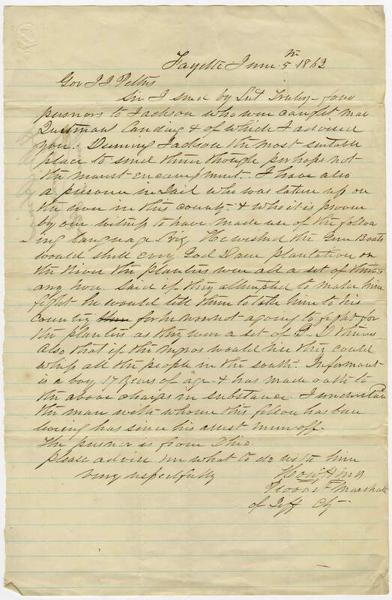 Fayette June 5th 1862
Gov J J Pettus
Sir I send by Lut four
prisners to Jackson who were caught near
Quitmans Landing & of which I advised
you. Deeming Jackson the most suitable
place to send them though perhaps not
the nearest encampment. I have also
a prisoner in Jail who was taken up on
the river in this county & who it is proven
by one witness to have made use of the follow
ing language viz He wished the Gun Boats
would shell every God Dam plantation on
the River the planters were all a set of thieves
any how. Said if they attempted to make him
fight he would tell them to take him to his
country for he was not agoing to fight for
the planters as they were a set of G D thieves
Also that if the negros would they could
whip all the people in the south. Informant
is a boy 17 years of age & has made oath to
the above charge in substance. I understand
the man with whom this felon has been
living has since his arrest run off.
The prisner is from Ohio
please advise me what to do with him
very respectfully
Provost Marshall
of Jeff Cty